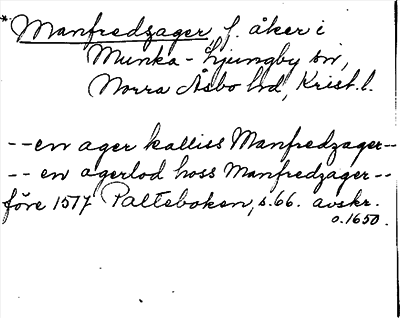 *Manfredzager f. åker i
Munka-Ljungby sn,
Norra Åsbo hd, Krist.l.
--en ager kalliss Manfredzager--
--en agerlod hoss Manfredzager--
före 1517 Palteboken, s.66. avskr.
o.1650.